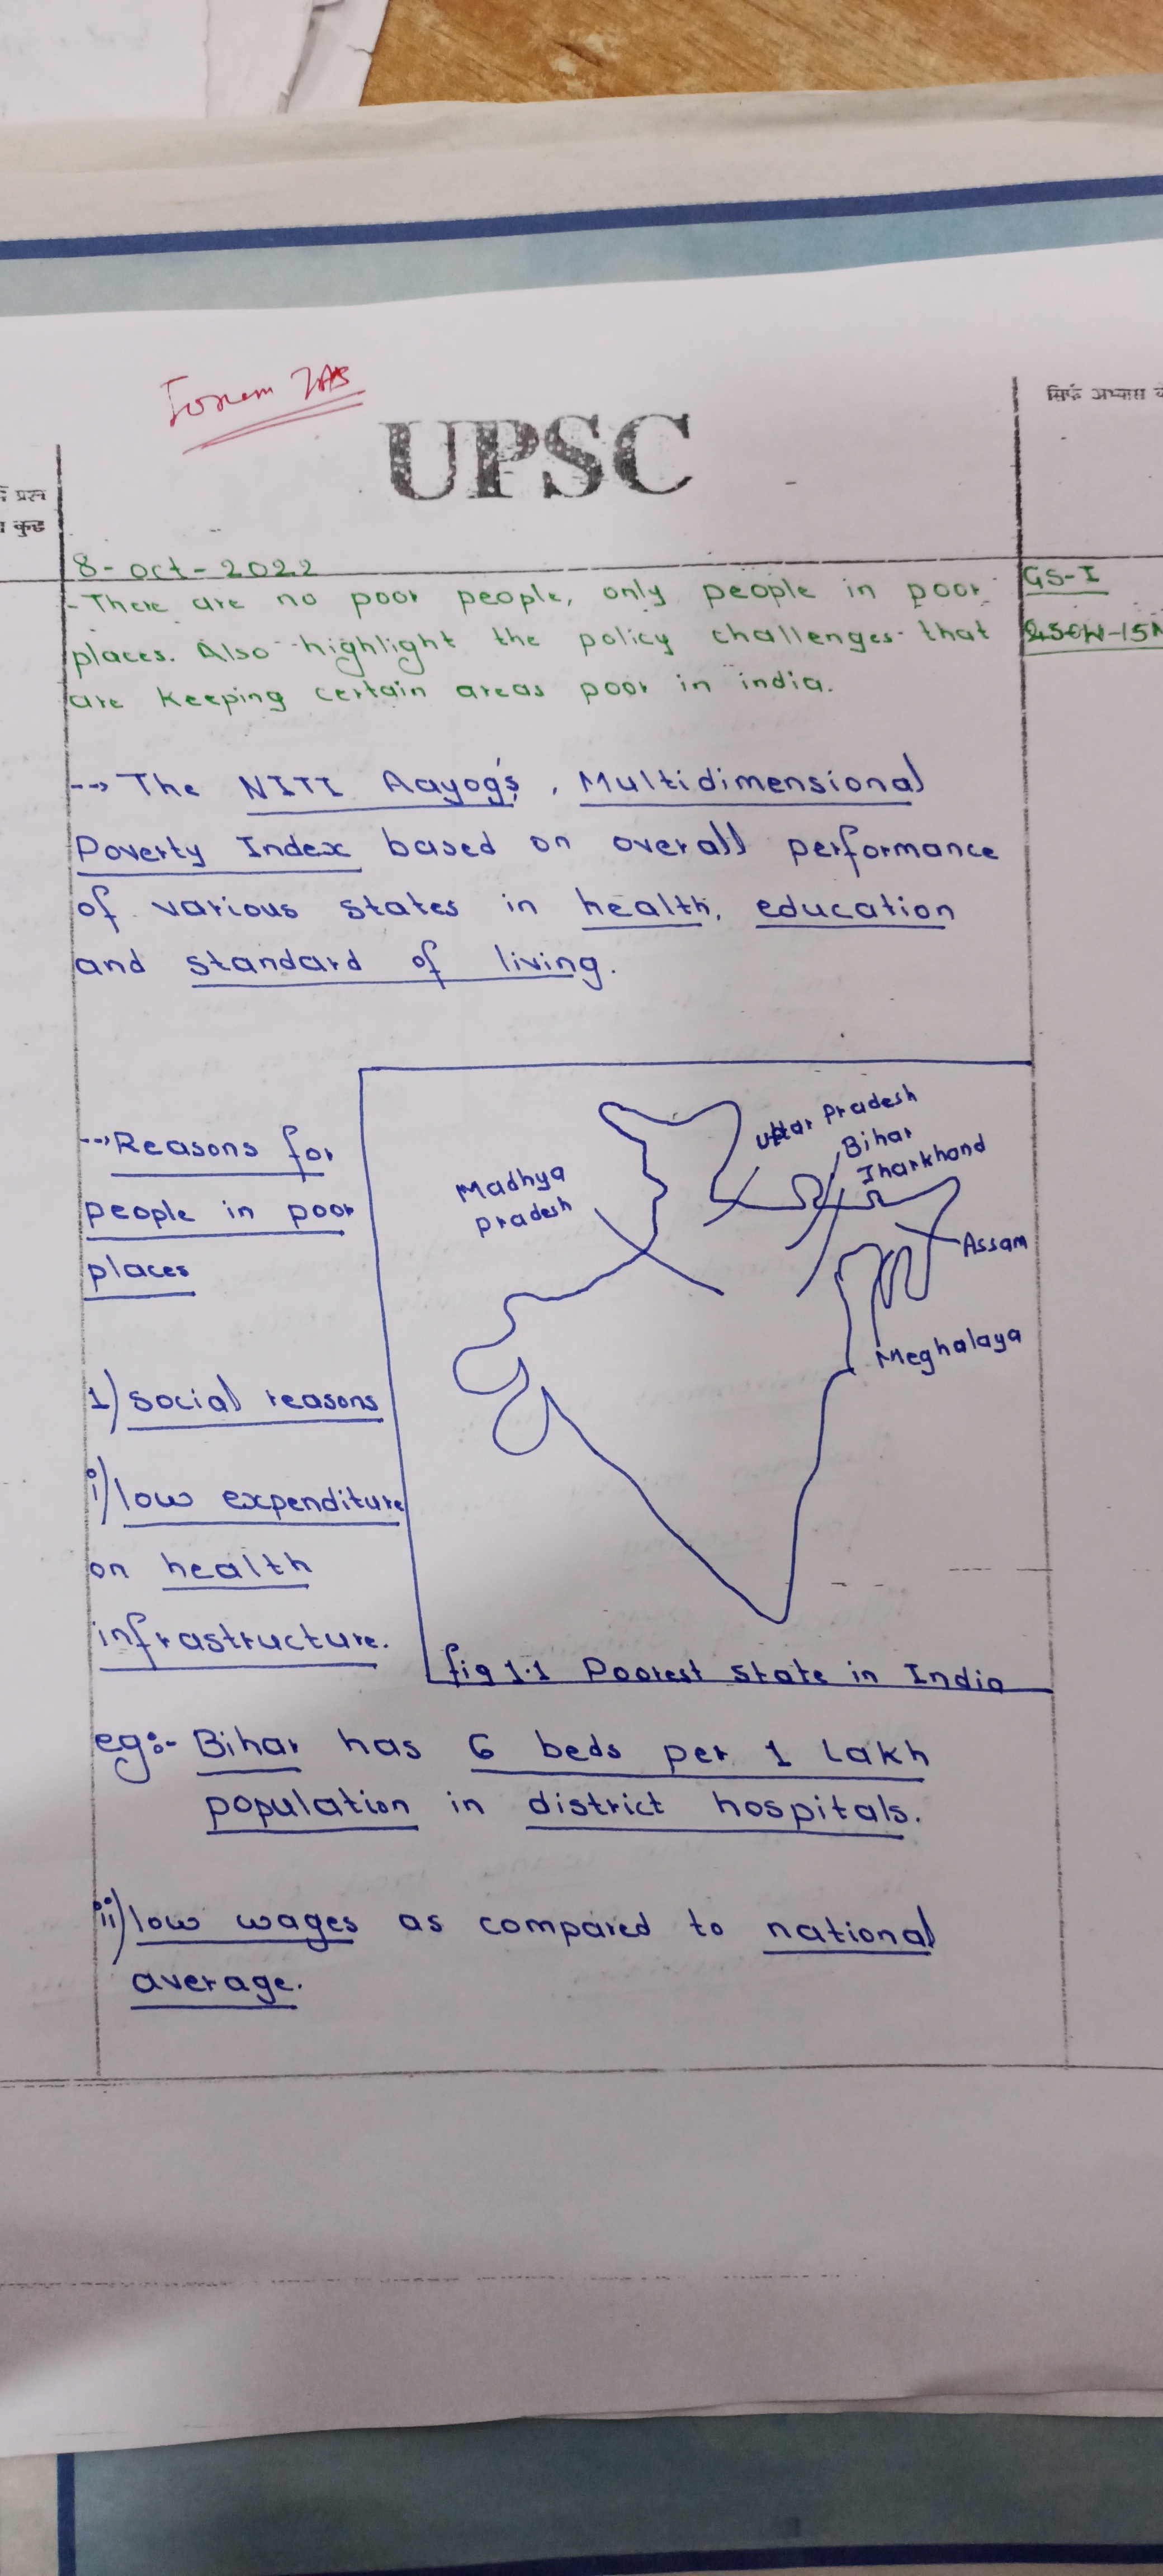 Forum IAS
UPSC
सिर्फ अभ्यास के
प्रश्न
कुछ
8-oct-2022
- There are no poor people, only people in poor
places. Also highlight the policy challenges that
are keeping certain areas poor in india.
GS-I
--> The NITI Aayog's, Multidimensional
Poverty Index based on overall performance
of various states in health, education
and standard of living.
--> Reasons for
people in poor
places
1) social reasons
i) low expenditure
on health
infrastructure.
Uttar Pradesh
Bihar
Jharkhand
Madhya
pradesh
Assam
Meghalaya
fig 1.1 Poorest state in India
eg:- Bihar has 6 beds per 1 Lakh
population in district hospitals.
ii) low wages as compared to national
average.